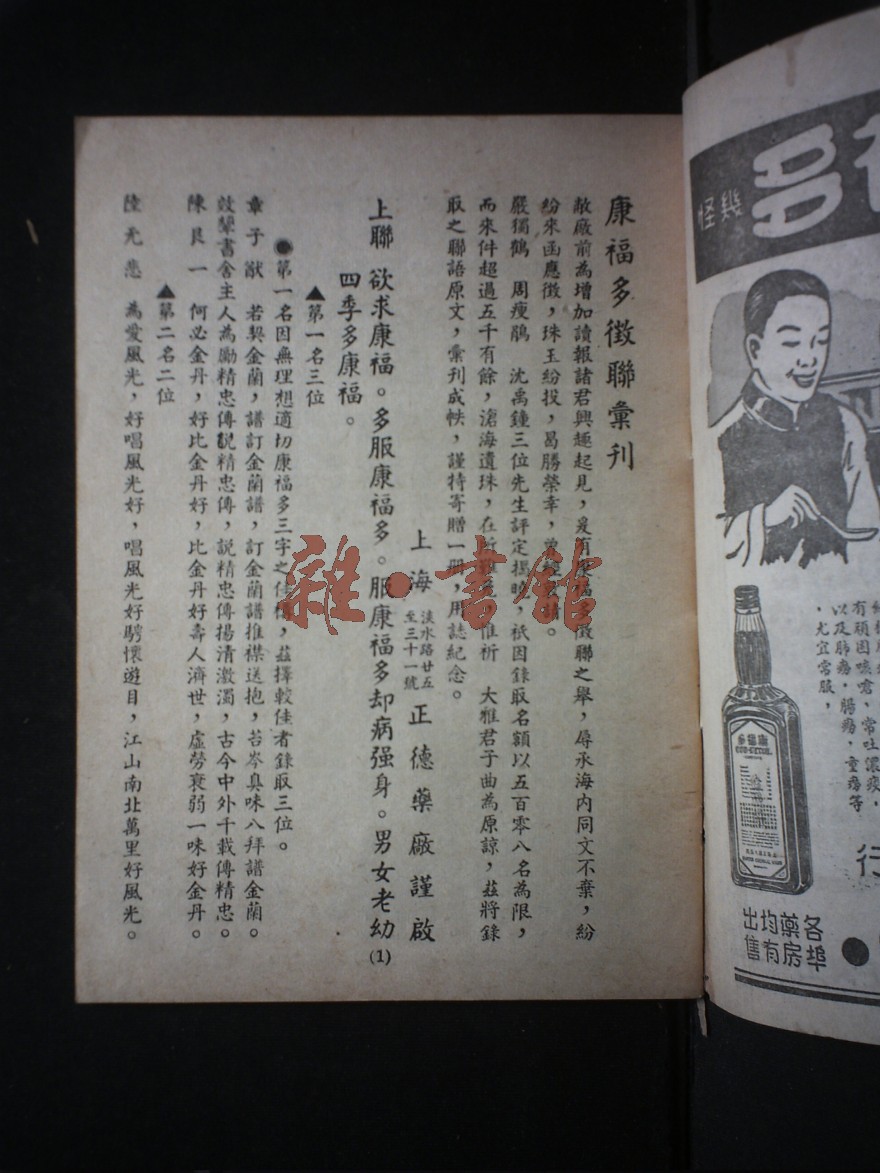 康福多徵聯彙刊
敝廠前為增加讀報諸君興趣起見，爰有康福多徵聯之舉，辱承海內同文不棄，紛
紛來函應徵，珠玉紛投，曷勝榮幸，
嚴獨鶴　周瘦鵑　沈禹鐘三位先生評定揭曉，祇因錄取名額以五百零八名為限，
而來件超過五千有餘，滄海遺珠，在所難免，惟祈　大雅君子曲為原諒，茲將錄
取之聯語原文，彙刊成帙，謹持寄贈一冊，用誌紀念。
上海　淡水路廿五至三十一號　正德藥廠謹啟
上聯　欲求康福。多服康福多。服康福多却病强身。男女老幼
四季多康福。
(1)
▲第一名三位
●第一名因無理想適切康福多三字之佳構，茲擇較佳者錄取三位。
章子猷　若契金蘭，譜訂金蘭譜，訂金蘭譜推襟送抱，苔岑臭味八拜譜金蘭。
效顰書舍主人為勵精忠傳說精忠傳，說精忠傳揚清激濁，古今中外千載傳精忠。
陳良一　何必金丹，好比金丹好，比金丹好壽人濟世，虛勞衰弱一味好金丹。
▲第二名二位
陸光　為愛風光，好唱風光好，唱風光好騁懷遊目，江山南北萬里好風光。
雜·書館
幾
怪
多
有頑固咳嗆，常吐濃痰，
以及肺癆，腸癆，童癆等
，尤宜常服，
康福多
行
各埠
藥房
均有
出售